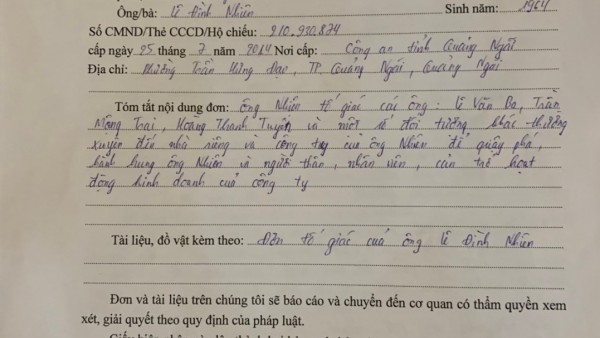 Ông/bà: Lê Đình Nhiên Sinh năm: 1964
Số CMND/Thẻ CCCD/Hộ chiếu: 210.930.874
cấp ngày 25 tháng 7 năm 2014 Nơi cấp: Công an tỉnh Quảng Ngãi
Địa chỉ: Phường Trần Hưng Đạo, TP. Quảng Ngãi, Quảng Ngãi
Tóm tắt nội dung đơn: ông Nhiên tố giác các ông: Lê Văn Ba, Trần
Mộng Trai, Hoàng Thanh Tuyên và một số đối tượng khác thường
xuyên đến nhà riêng và công ty của ông Nhiên để quậy phá,
hành hung ông Nhiên và người thân, nhân viên, cản trở hoạt
động kinh doanh của công ty
Tài liệu, đồ vật kèm theo: Đơn tố giác của ông Lê Đình Nhiên
Đơn và tài liệu trên chúng tôi sẽ báo cáo và chuyển đến cơ quan có thẩm quyền xem
xét, giải quyết theo quy định của pháp luật.